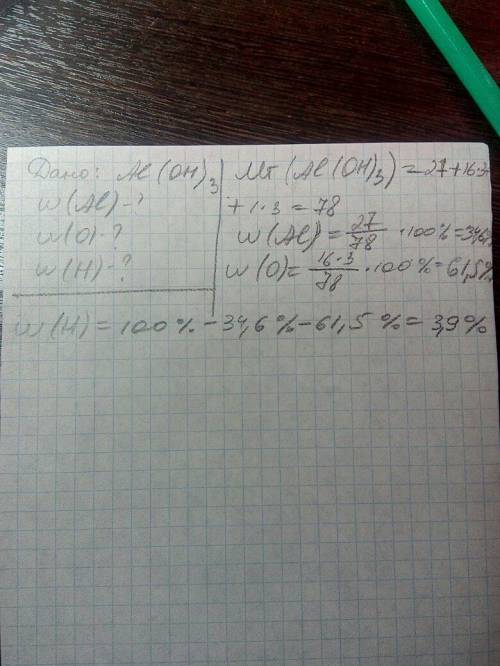 Дано: Al(OH)3
w(Al)-?
w(O)-?
w(H)-?
Mr(Al(OH)3) = 27+16·3+
+1·3 = 78
w(Al) = 27/78 ·100% = 34,6%
w(O) = 16·3/78 ·100% = 61,5%
w(H) = 100% - 34,6% - 61,5% = 3,9%